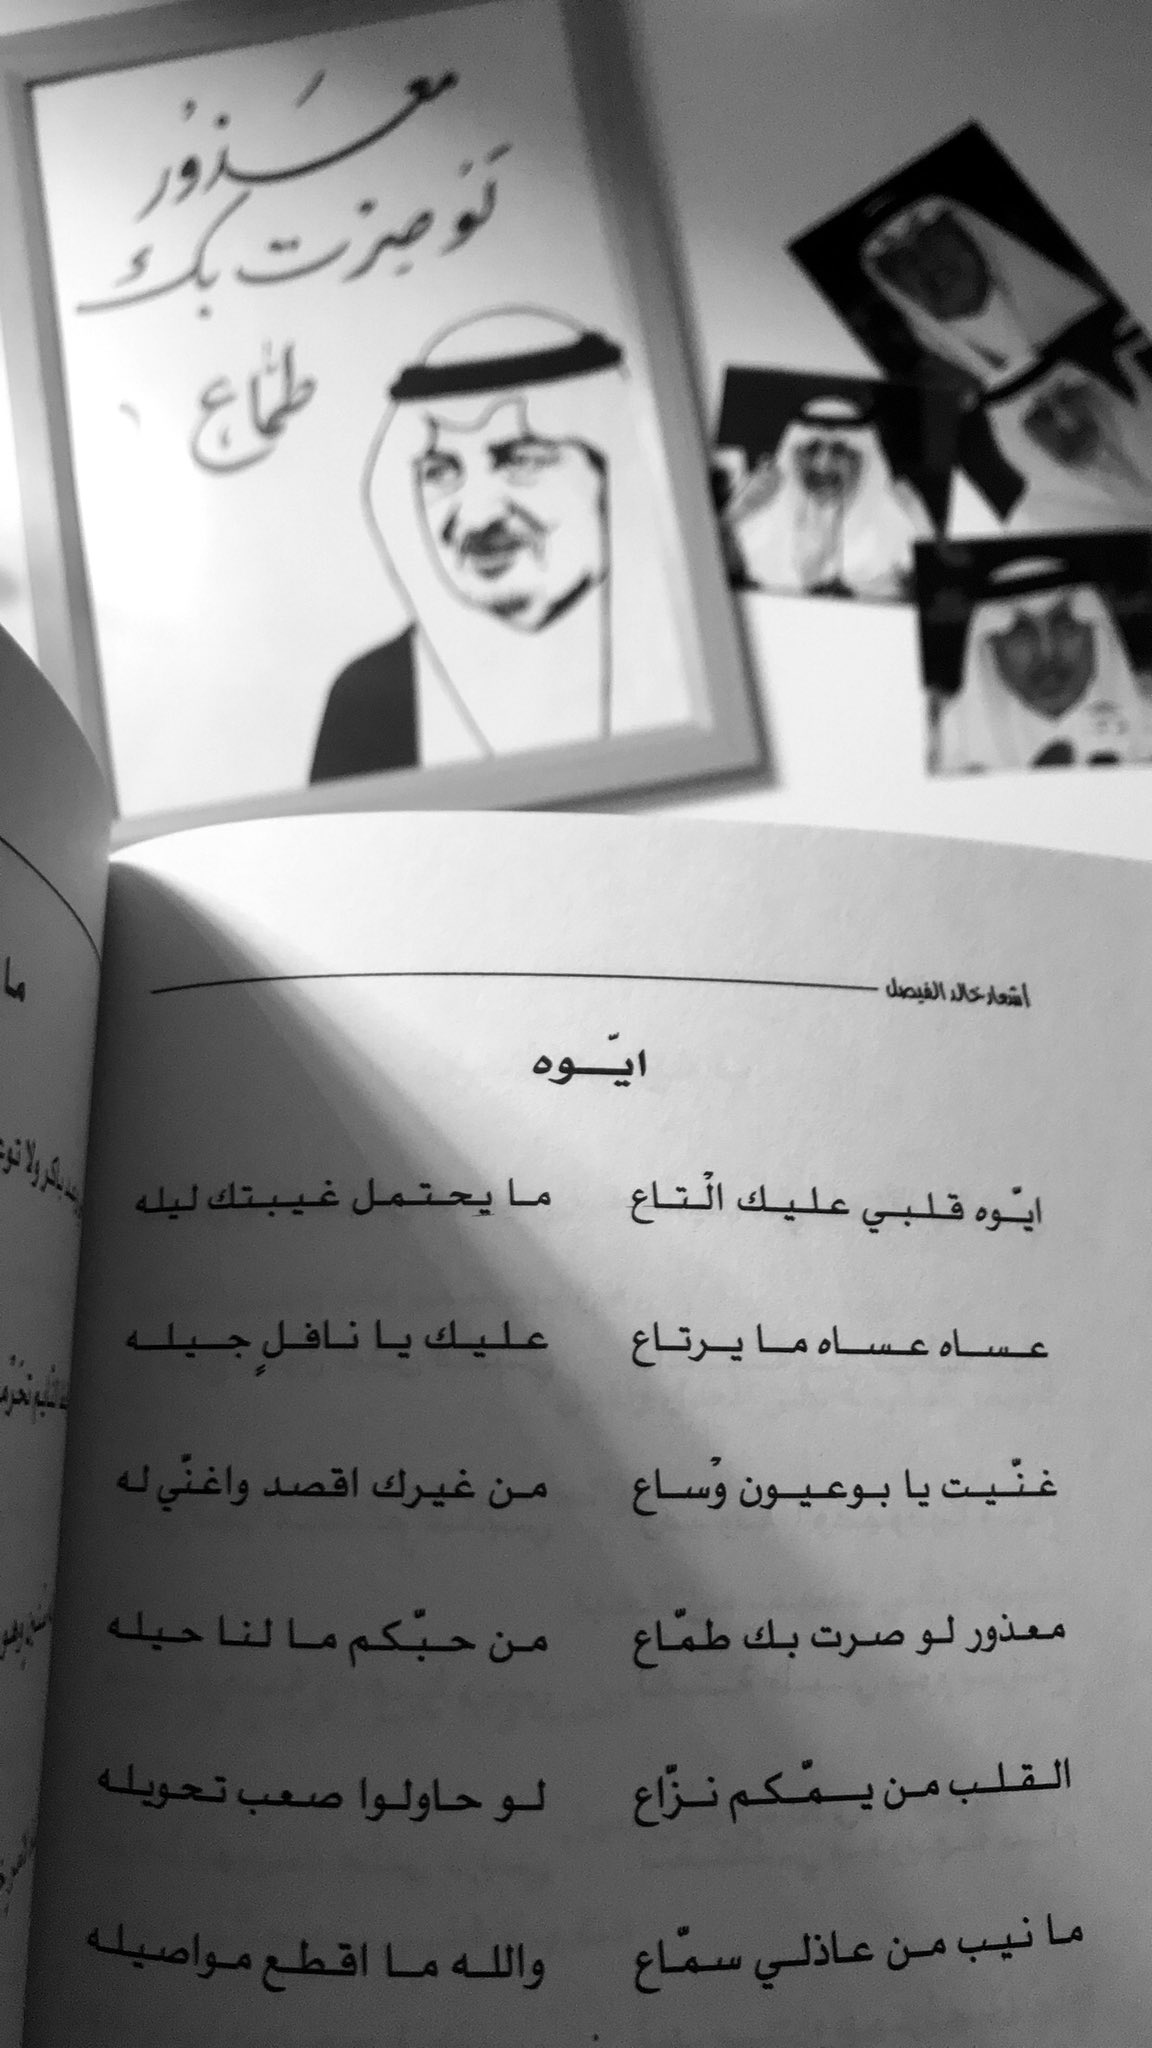 معذور
لو صرت بك
طماع
أشعار خالد الفيصل
ايّوه
ايّوه قلبي عليك الْتاع ما يحتمل غيبتك ليله
عساه عساه ما يرتاع عليك يا نافلٍ جيله
غنّيت يا بوعيون وْساع من غيرك اقصد واغنّي له
معذور لو صرت بك طمّاع من حبّكم ما لنا حيله
القلب من يمّكم نزّاع لو حاولوا صعب تحويله
ما نيب من عاذلي سمّاع والله ما اقطع مواصيله
ما